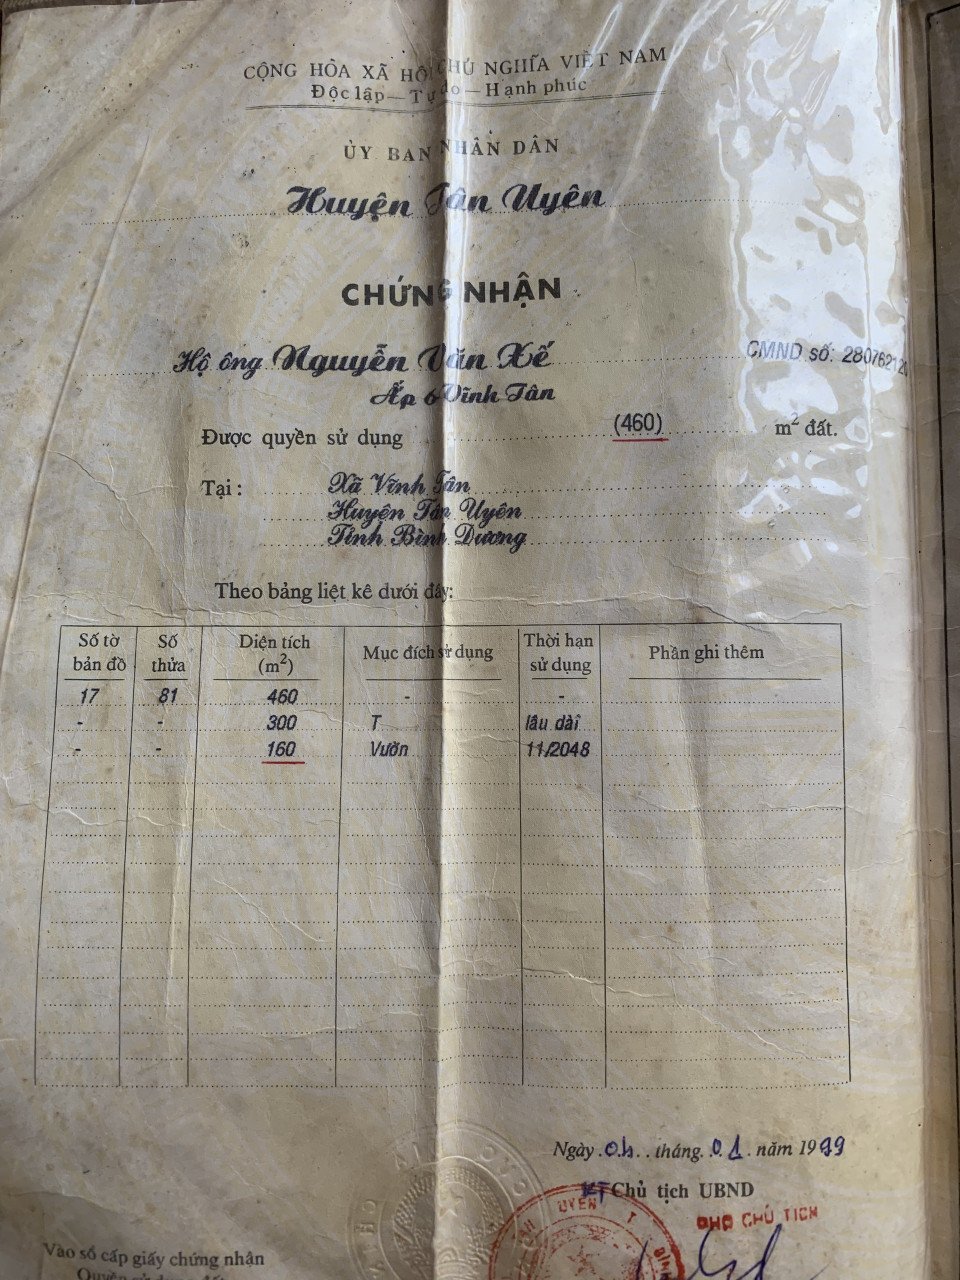 CỘNG HÒA XÃ HỘI CHỦ NGHĨA VIỆT NAM
Độc lập — Tự do — Hạnh phúc
ỦY BAN NHÂN DÂN
Huyện Tân Uyên
CHỨNG NHẬN
Hộ ông Nguyễn Văn Xế CMND số: 28076212
Ấp 6 Vĩnh Tân
Được quyền sử dụng (460) m² đất.
Tại : Xã Vĩnh Tân
Huyện Tân Uyên
Tỉnh Bình Dương
Theo bảng liệt kê dưới đây:
Số tờ bản đồ Số thửa Diện tích (m²) Mục đích sử dụng Thời hạn sử dụng Phần ghi thêm
17 81 460 - -
- - 300 T lâu dài
- - 160 Vườn 11/2048
Ngày tháng 01 năm 1999
KT Chủ tịch UBND
PHÓ CHỦ TỊCH
Vào sổ cấp giấy chứng nhận